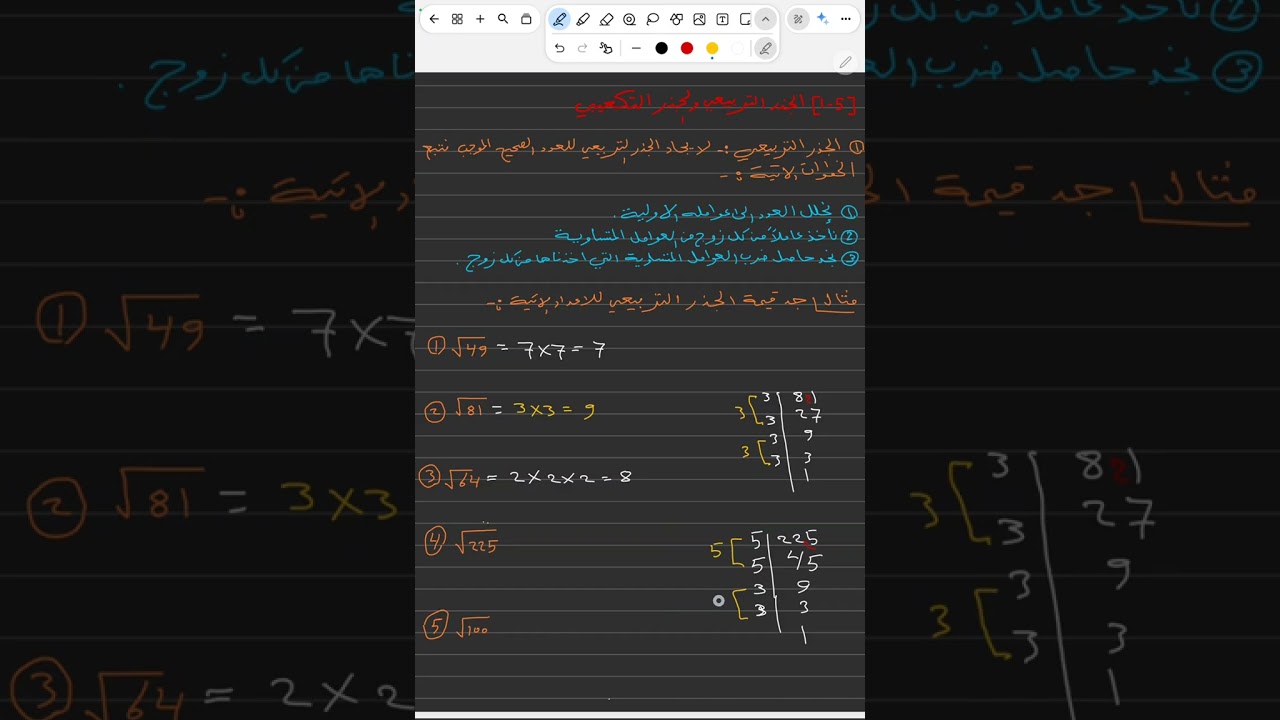 [1-5] الجذر التربيعي والجذر التكعيبي
① الجذر التربيعي :- لايجاد الجذر التربيعي للعدد الصحيح الموجب نتبع
الخطوات الاتية :-
① نحلل العدد الى عوامله الاولية .
② نأخذ عاملاً من كل زوج من العوامل المتساوية
③ نجد حاصل ضرب العوامل المتساوية التي اخذناها من كل زوج .
مثال/ جد قيمة الجذر التربيعي للاعداد الاتية :-
① √49 = 7×7 = 7
② √81 = 3×3 = 9
3 | 81
3 | 27
3 | 9
3 | 3
1
3
3
③ √64 = 2×2×2 = 8
④ √225
5 | 225
5 | 45
3 | 9
3 | 3
1
5
⑤ √100